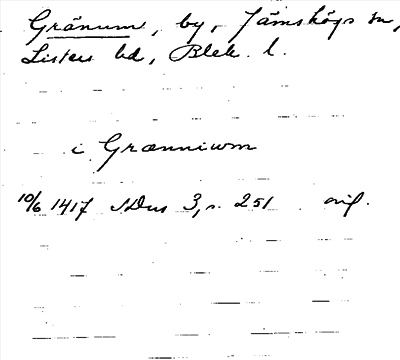 Gränum, by, Jämshögs sn,
Listers hd, Blek. l.
i Grænniwm
10/6 1417 SDns 3, s. 251 orig.